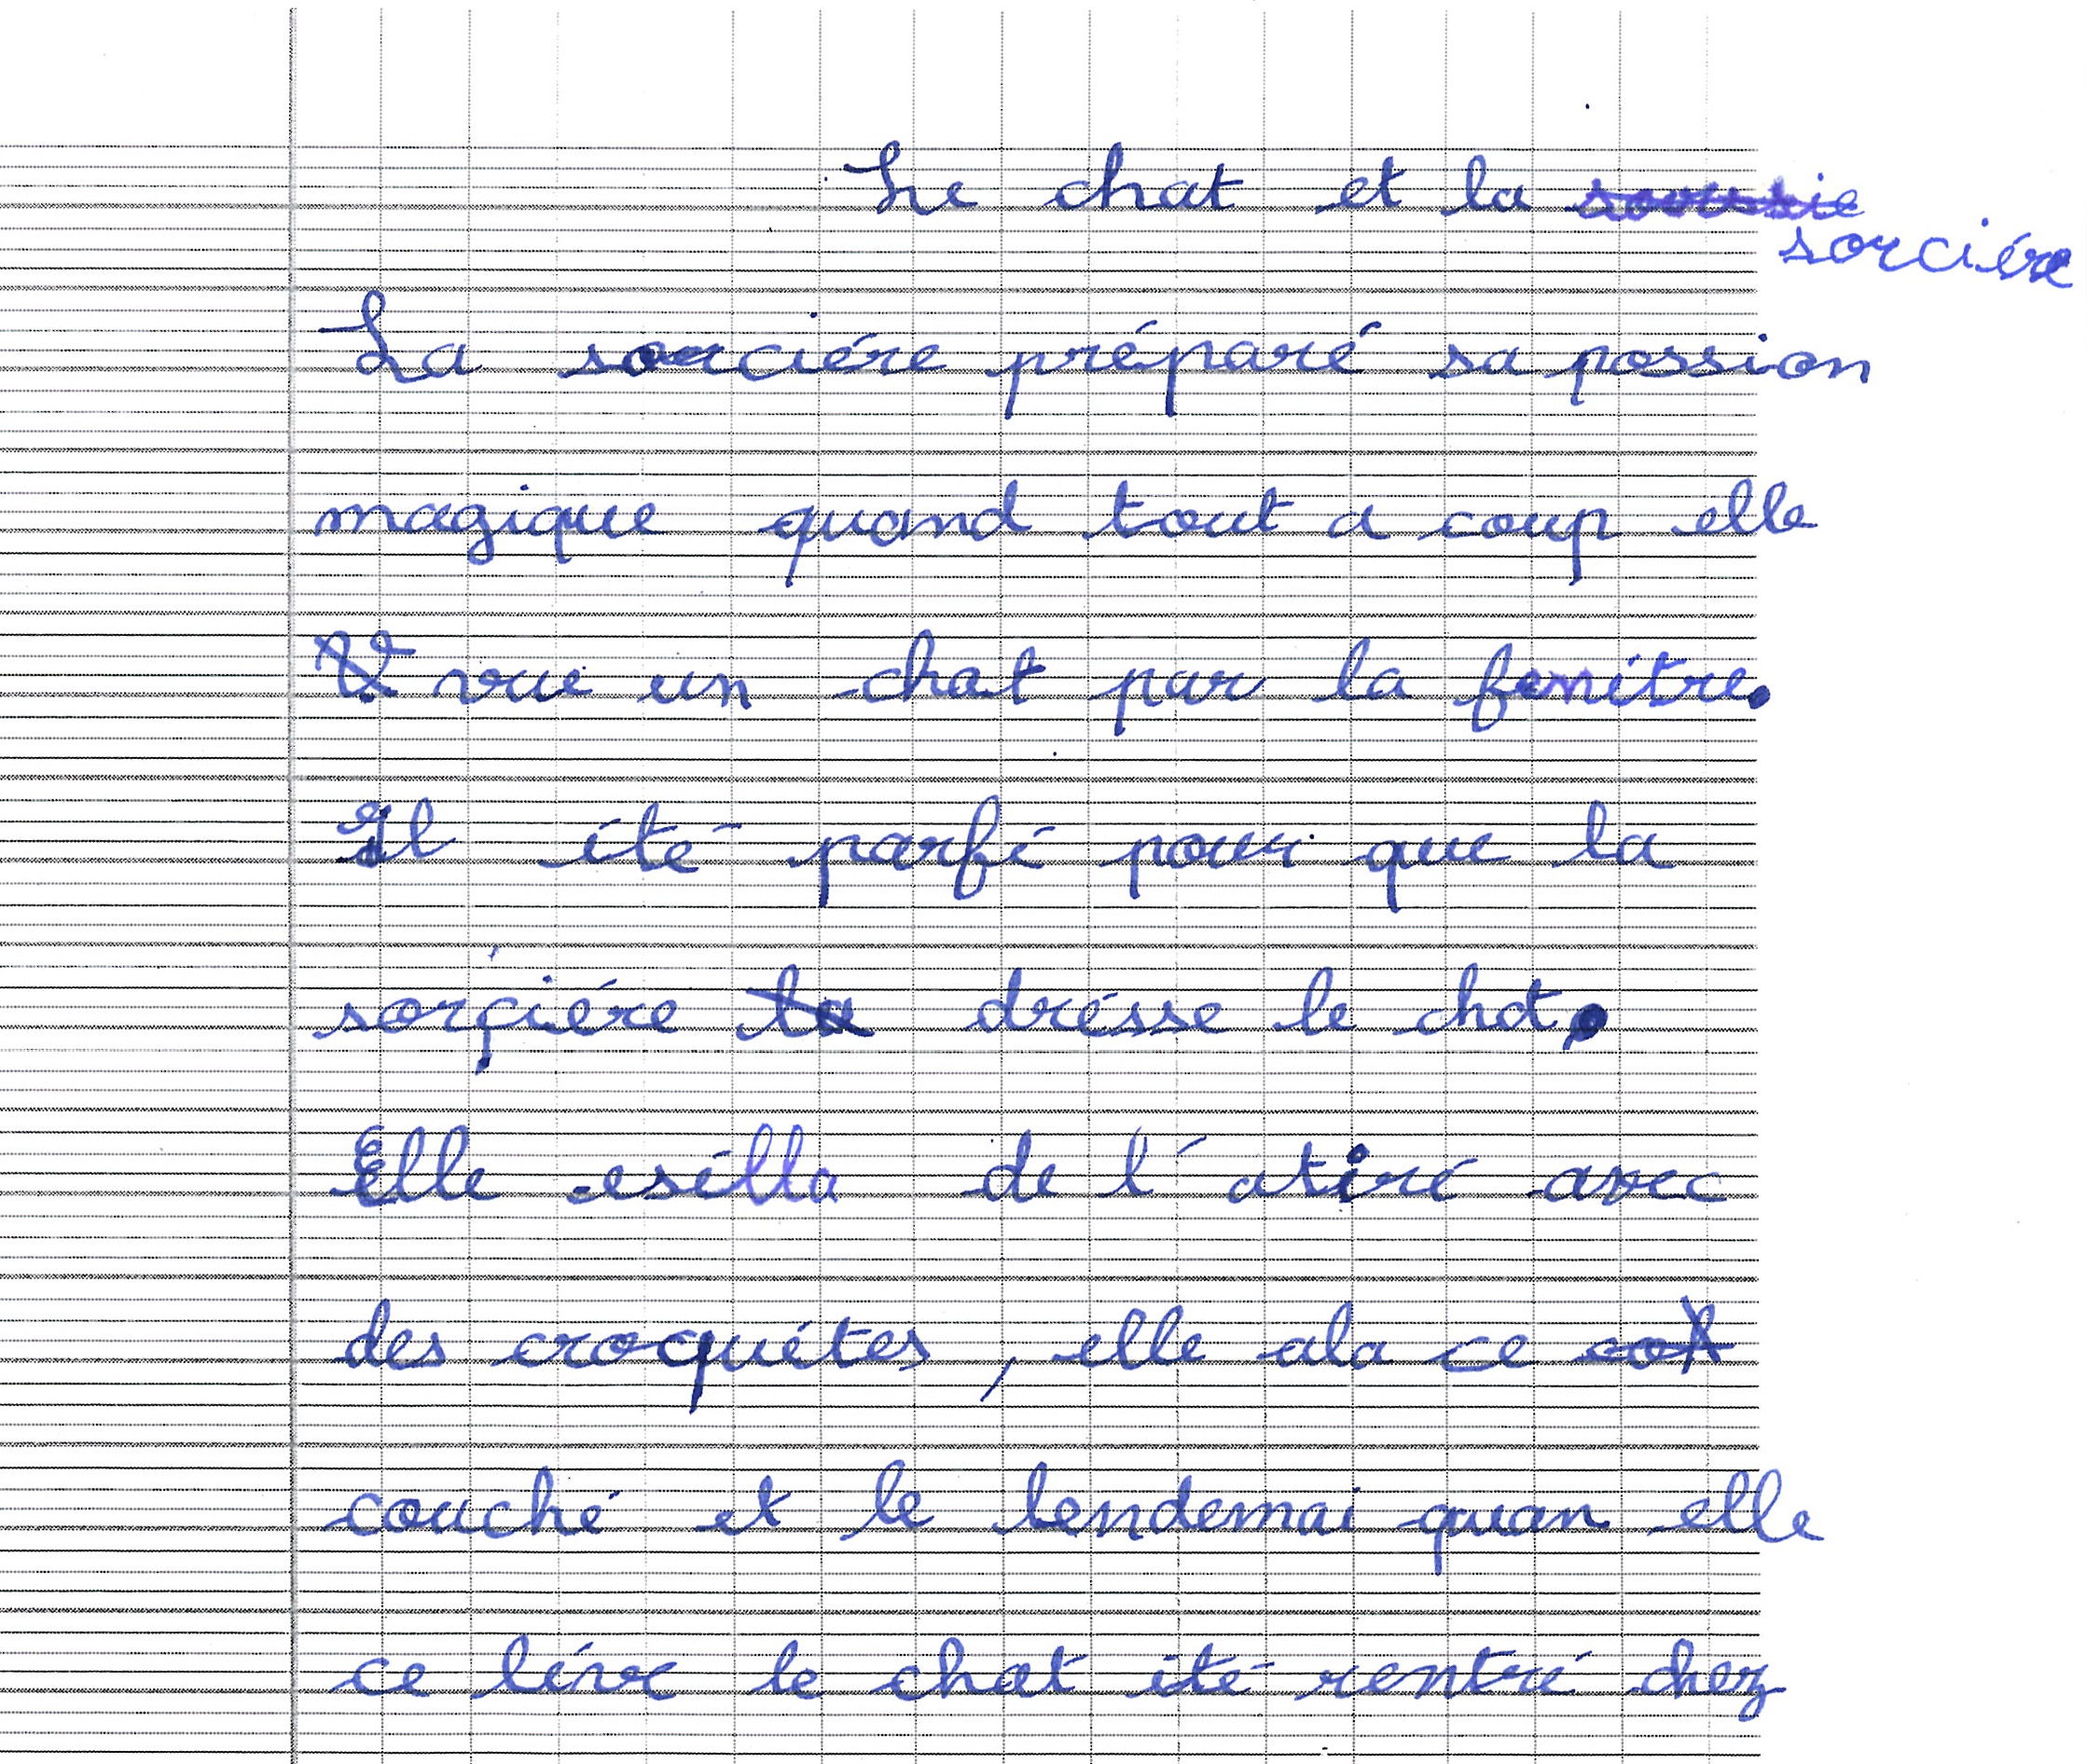 Le chat et la
sorciére
La sorciére préparé sa possion
magique quand tout a coup elle
vue un chat par la fenétre.
Il été parfé pour que la
sorçiére drésse le chat.
Elle eséilla de l'atiré avec
des croquétes, elle ala ce
couché et le lendemai quan elle
ce léve le chat été rentré chez